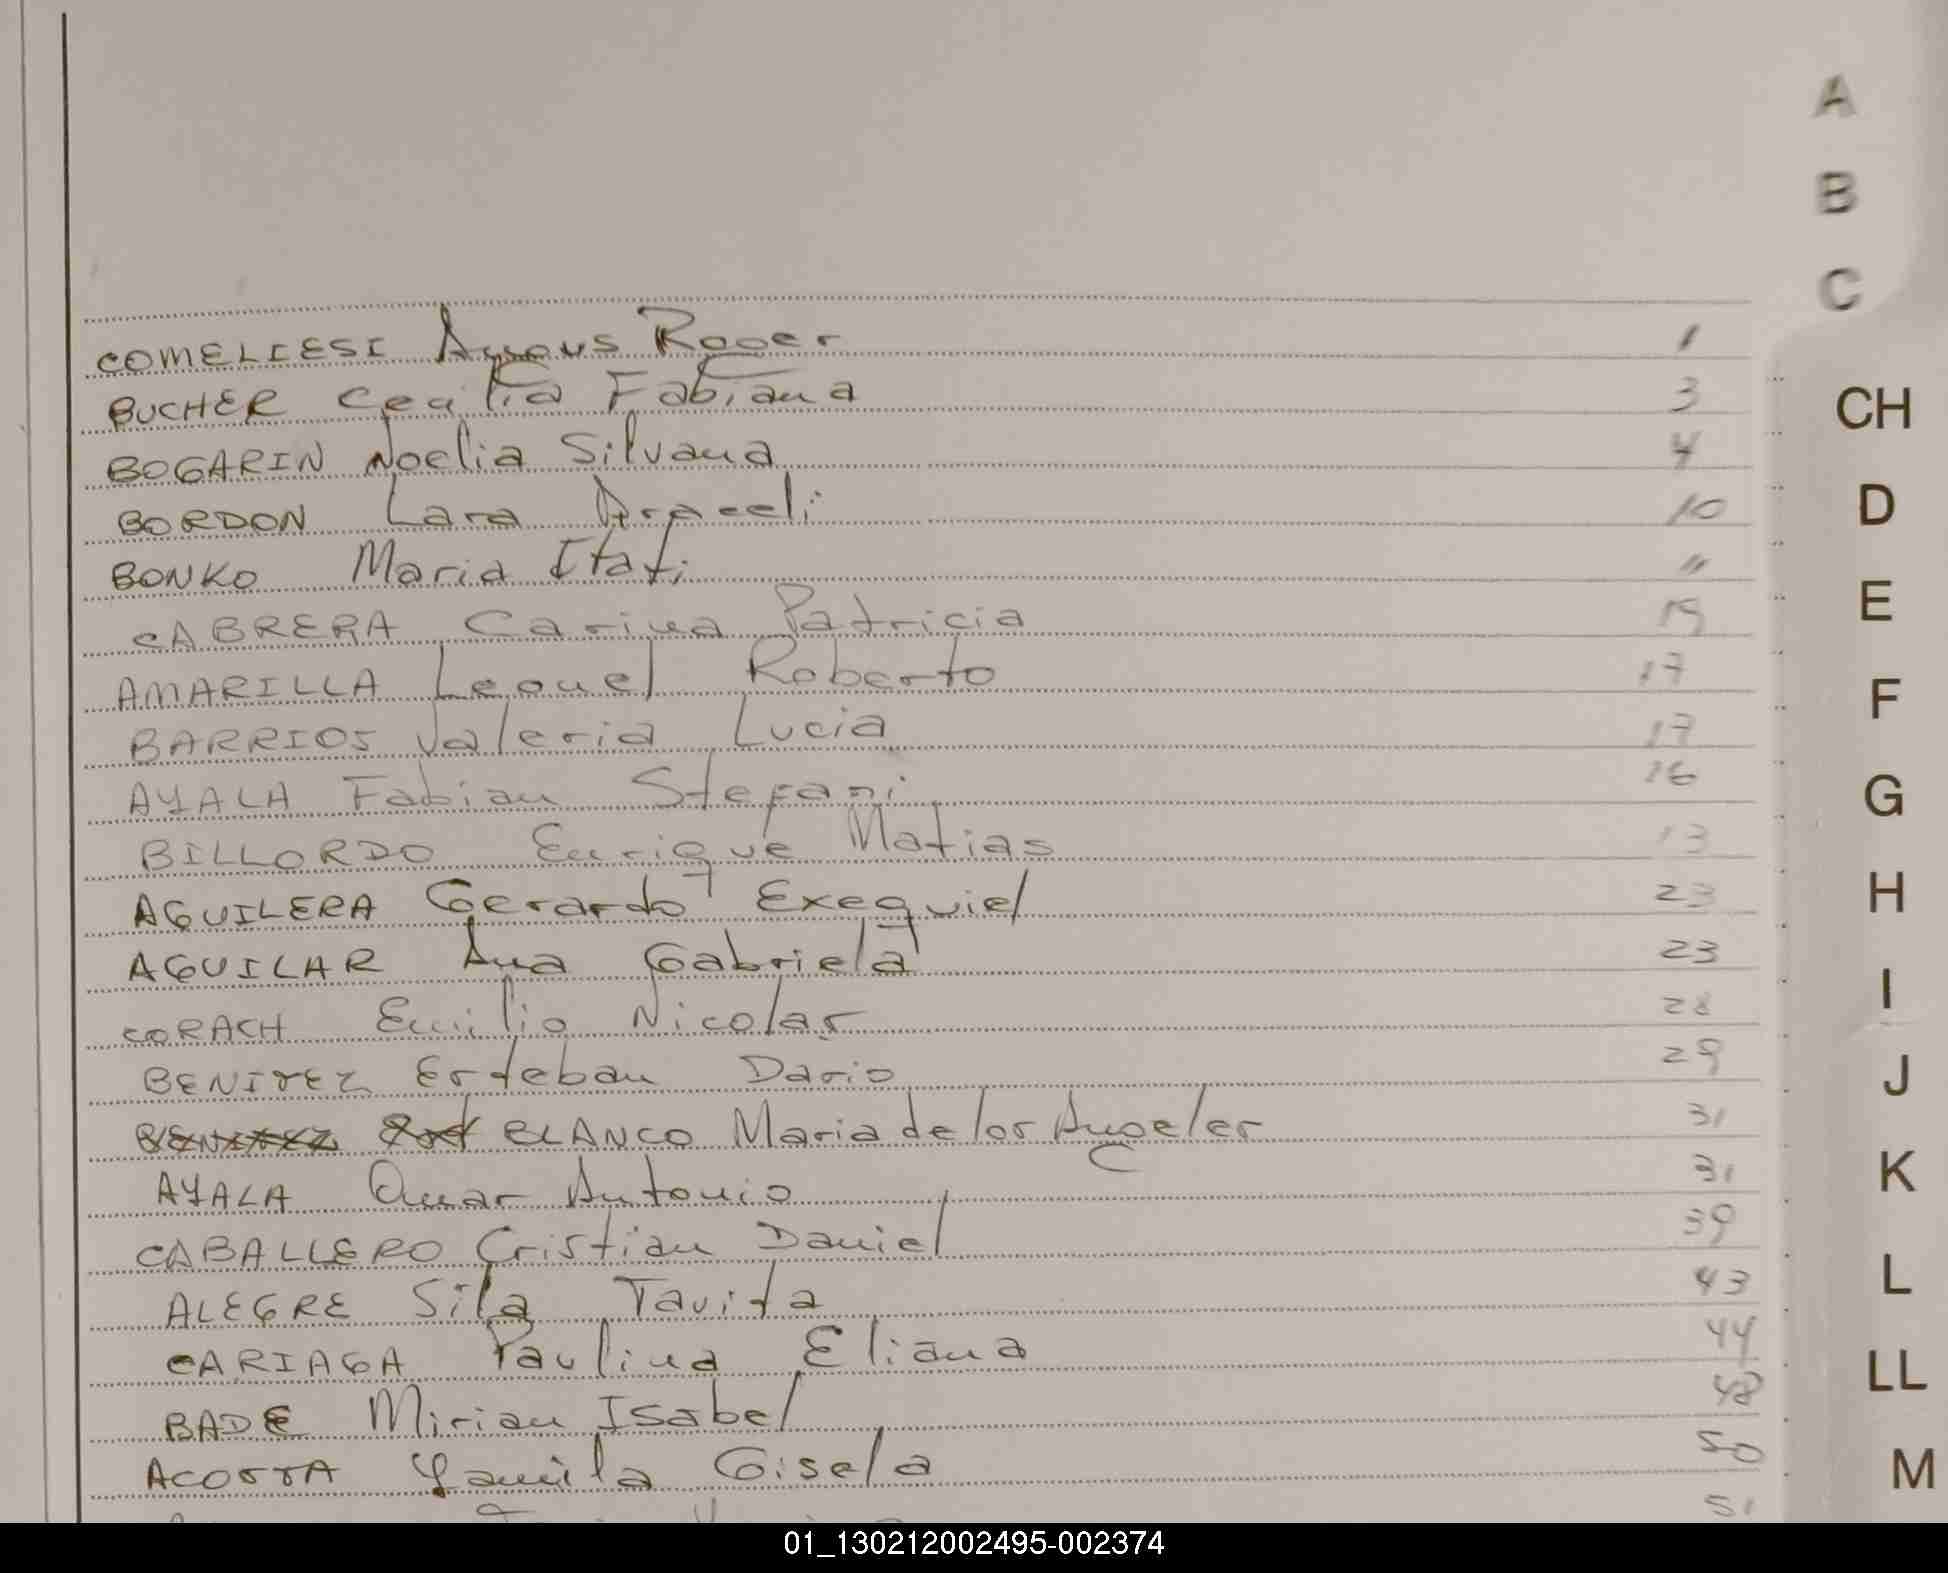 COMELIESI Angus Roger 1
BUCHER Cecilia Fabiana 3
BOGARIN Noelia Silvana 4
BORDON Lara Araceli 10
BONKO Maria Itati 11
CABRERA Carina Patricia 15
AMARILLA Leonel Roberto 17
BARRIOS Valeria Lucia 17
AYALA Fabian Stefani 16
BILLORDO Enrique Matias 13
AGUILERA Gerardo Exequiel 23
AGUILAR Ana Gabriela 23
CORACH Emilio Nicolas 28
BENITEZ Esteban Dario 29
BENITEZ BLANCO Maria de los Angeles 31
AYALA Omar Antonio 31
CABALLERO Cristian Daniel 39
ALEGRE Sila Tavita 43
CARIAGA Paulina Eliana 44
BADE Mirian Isabel 48
ACOSTA Yamila Gisela 50
51
A
B
C
CH
D
E
F
G
H
I
J
K
L
LL
M
01_130212002495-002374